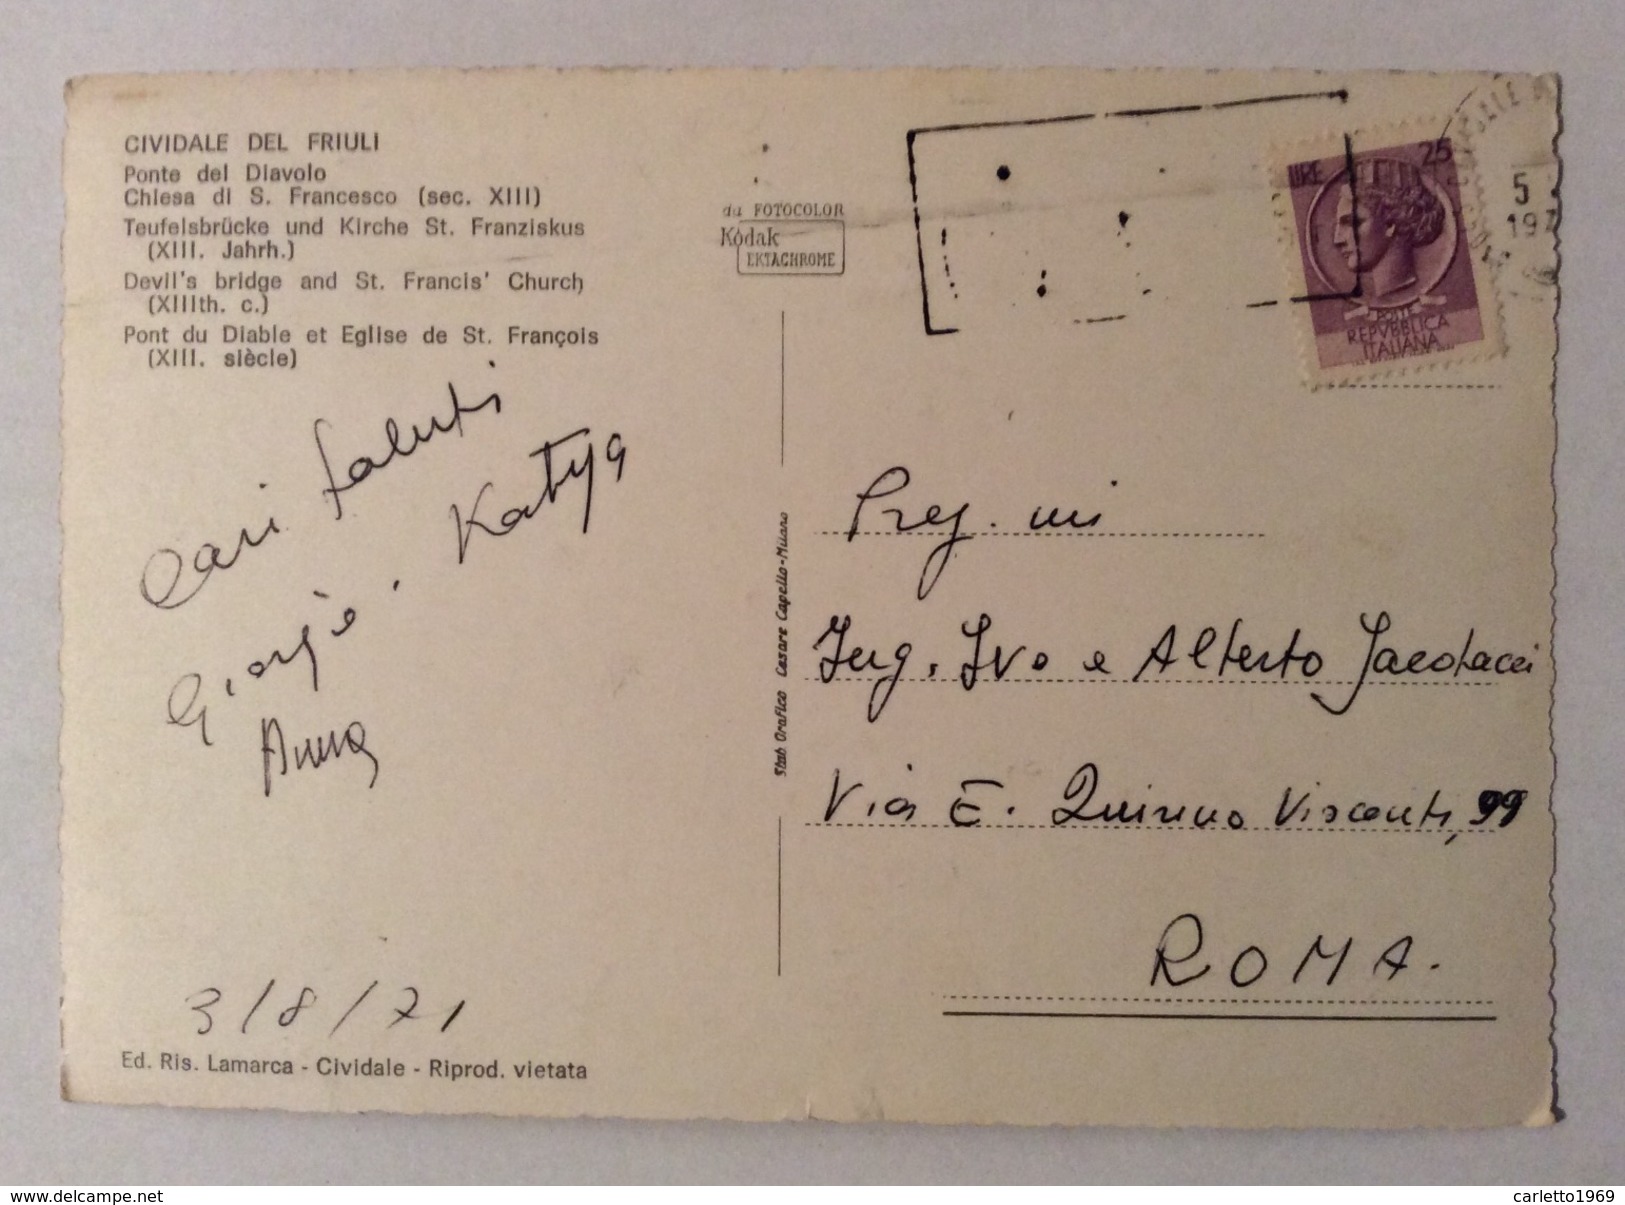 CIVIDALE DEL FRIULI
Ponte del Diavolo
Chiesa di S. Francesco (sec. XIII)
Teufelsbrücke und Kirche St. Franziskus
(XIII. Jahrh.)
Devil's bridge and St. Francis' Church
(XIIIth. c.)
Pont du Diable et Eglise de St. François
(XIII. siècle)
Cari saluti
Giorgio. Katya
Anna
3/8/71
Ed. Ris. Lamarca - Cividale - Riprod. vietata
da FOTOCOLOR
Kodak
EKTACHROME
Stab Grafico Cesare Capello-Milano
LIRE 25
POSTE
REPVBBLICA
ITALIANA
5
197
Preg. mi
Ing. Ivo e Alberto Jacobacci
Via E. Quirino Visconti, 99
ROMA.
www.delcampe.net
carletto1969